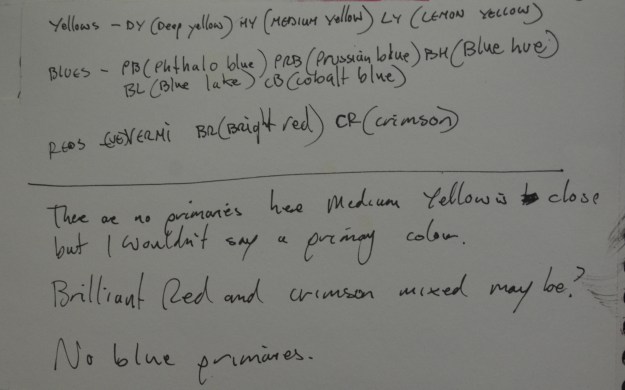 Yellows - DY (Deep yellow) MY (MEDIUM Yellow) LY (LEMON YELLOW)
BLUES - PB (Phthalo blue) PRB (Prussian blue) BH (Blue hue)
BL (Blue lake) CB (Cobalt blue)
REDS VERMI BR (Bright red) CR (crimson)
There are no primaries here Medium Yellow is close
but I wouldn't say a primary colour.
Brilliant Red and crimson mixed may be?
No blue primaries.